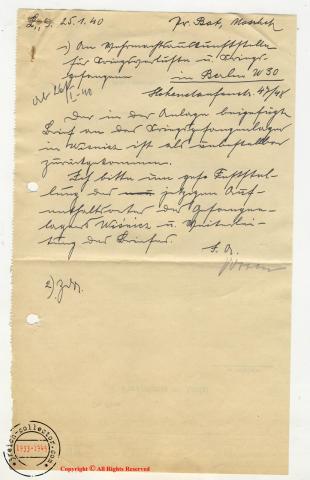 25.1.40
1) An Wehrmachtauskunftstelle
für Kriegerverluste u. Kriegs-
gefangene
in Berlin W 30
Hohenstaufenstr. 47/48
Der in der Anlage beigefügte
Brief an das Kriegsgefangenenlager
in Wisnicz ist als unbestellbar
zurückgekommen.
Ich bitte um gefl. Feststel-
lung des jetzigen Auf-
enthaltsortes des Gefangenen-
lagers Wisnicz u. Weiterlei-
tung des Briefes.
2)
reich-collector.com
1933-1945
Copyright © All Rights Reserved